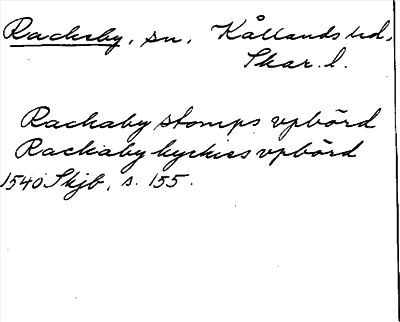 Rackeby, sn, Kållands hd,
Skar. l.
Rackaby stomps vpbörd
Rackaby kyrkies vpbörd
1540 Skjb, s. 155.